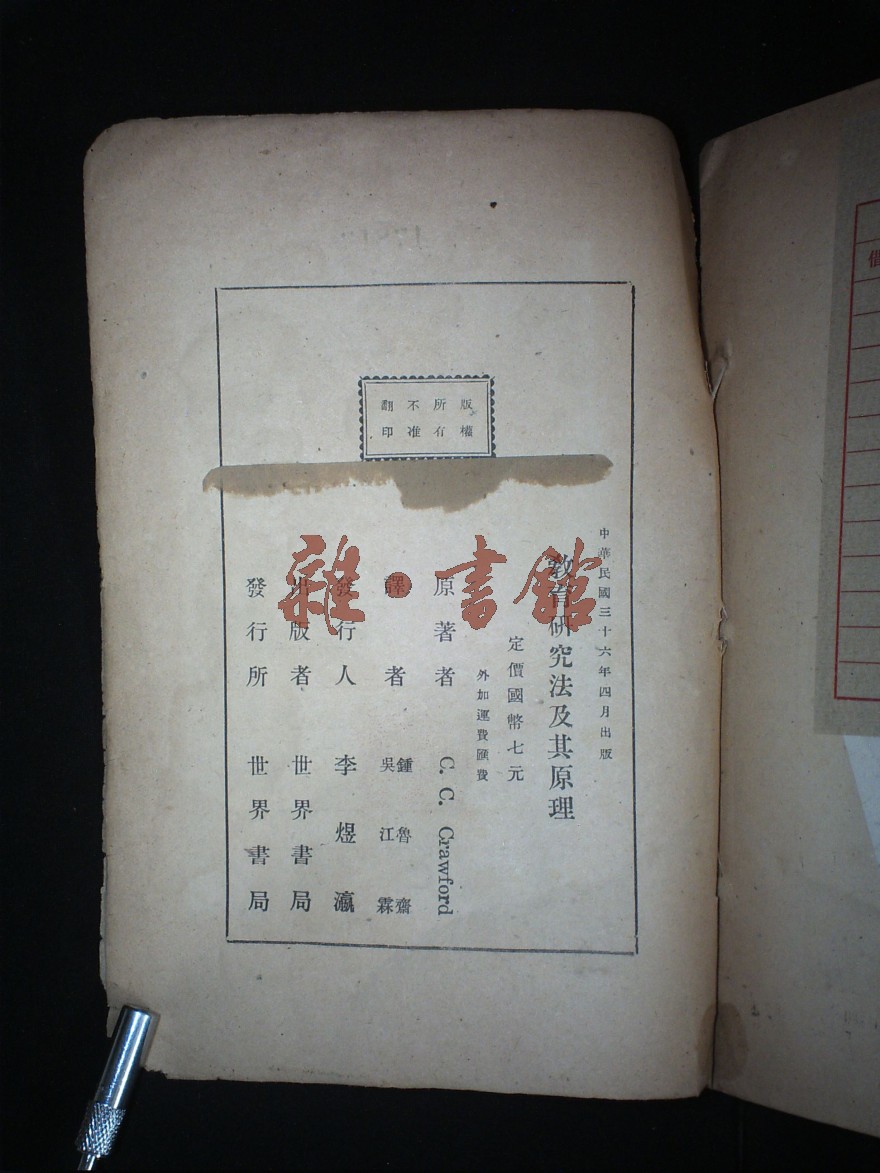 版權
所有
不准
翻印
中華民國三十六年四月出版
教育研究法及其原理
定價國幣七元
外加運費匯費
原著者 C. C. Crawford
譯者 鍾魯齋
吳江霖
發行人 李煜瀛
出版者 世界書局
發行所 世界書局
雜·書館